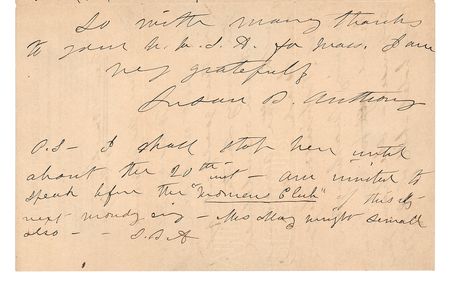 So with many thanks
to your N. W. S. A. for Mass. I am
very gratefully
Susan B. Anthony
P.S - I shall stop here until
about the 20th inst - am invited to
speak before the "Womens Club" of this city
next monday eve - Mrs May Wright Sewall
also - - S. B. A